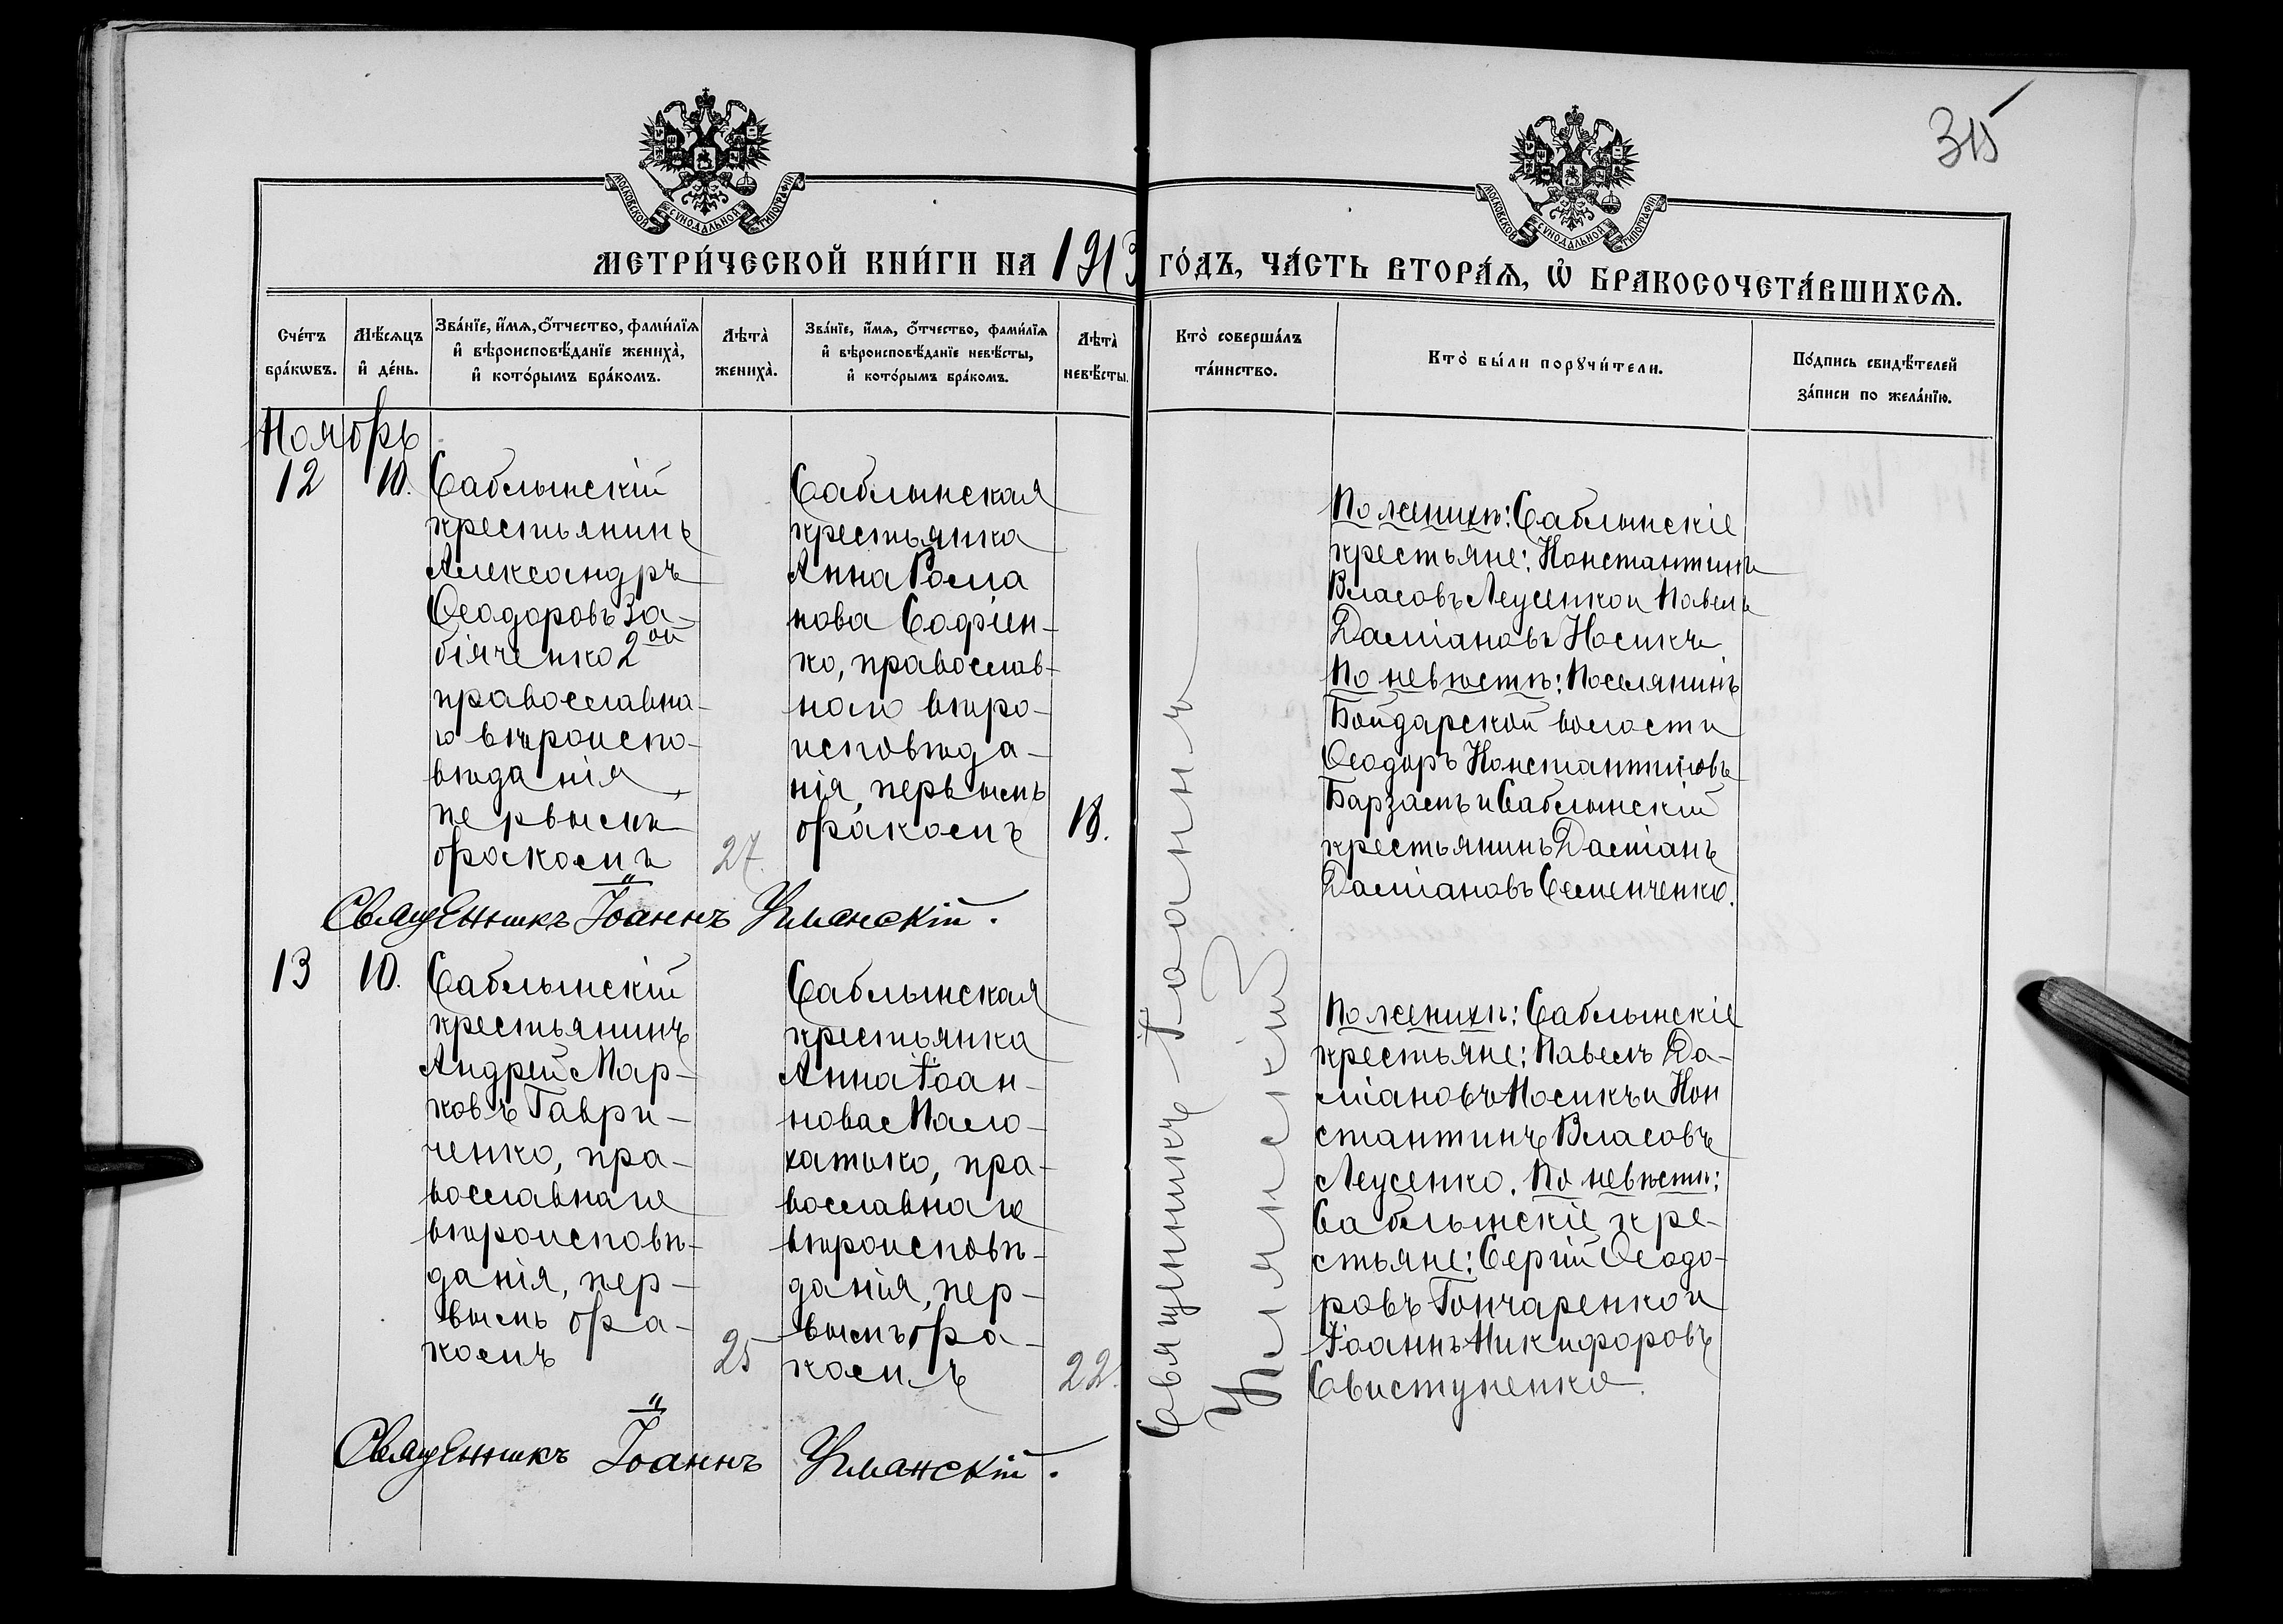 315
МОСКОВСКОЙ СѴНОДАЛЬНОЙ ТИПОГРАФІИ
МОСКОВСКОЙ СѴНОДАЛЬНОЙ ТИПОГРАФІИ
МЕТРИ́ЧЕСКОЙ КНИ́ГИ НА 1913 ГО́ДЪ, ЧА́СТЬ ВТОРА́Ѧ, Ѽ БРАКОСОЧЕТА́ВШИХСѦ.
Сче́тъ
бра́кѡвъ.
Мѣ́сѧцъ
и҆ де́нь.
Зва́нїе, и҆́мѧ, ѻ҆́тчество, фами́лїѧ
и҆ вѣроисповѣ́данїе жениха̀,
и҆ кото́рымъ бра́комъ.
Лѣта̀
жениха̀.
Зва́нїе, и҆́мѧ, ѻ҆́тчество, фами́лїѧ
и҆ вѣроисповѣ́данїе невѣ́сты,
и҆ кото́рымъ бра́комъ.
Лѣта̀
невѣ́сты.
Кто̀ соверша́лъ
та́инство.
Кто̀ бы́ли порꙋчи́тели.
По́дпись свидѣ́телей
за́писи по жела́нїю.
Ноябрь
12
10.
Саблынскій
крестьянинъ
Александръ
Ѳеодоровъ За-
біяченко 2ой
православна-
го вѣроиспо-
вѣданія,
первымъ
бракомъ
27.
Саблынская
крестьянка
Анна Рома
нова Софіен-
ко, православ-
наго вѣро-
исповѣда-
нія, первымъ
бракомъ
18.
Священникъ Іоаннъ
Уманскій
По женихѣ: Саблынскіе
крестьяне: Константинъ
Власовъ Леусенко и Павелъ
Даміановъ Носикъ.
По невѣстѣ: Поселянинъ
Бойдарской волости
Ѳеодоръ Константиновъ
Барзамъ и Саблынскій
крестьянинъ Даміанъ
Даміановъ Семенченко.
Священникъ Іоаннъ Уманскій.
13
10.
Саблынскій
крестьянинъ
Андрей Мар-
ковъ Гаври-
ченко, пра-
вославнаго
вѣроисповѣ-
данія, пер-
вымъ бра-
комъ
25
Саблынская
крестьянка
Анна Іоан-
нова Мало-
катько, пра-
вославнаго
вѣроисповѣ-
данія, пер-
вымъ бра-
комъ
22.
По женихѣ: Саблынскіе
крестьяне: Павелъ Да-
міановъ Носикъ и Кон
стантинъ Власовъ
Леусенко. По невѣстѣ:
Саблынскіе кре-
стьяне: Сергій Ѳеодо-
ровъ Гончаренко и
Іоаннъ Никифоровъ
Свистуненко.
Священникъ Іоаннъ Уманскій.